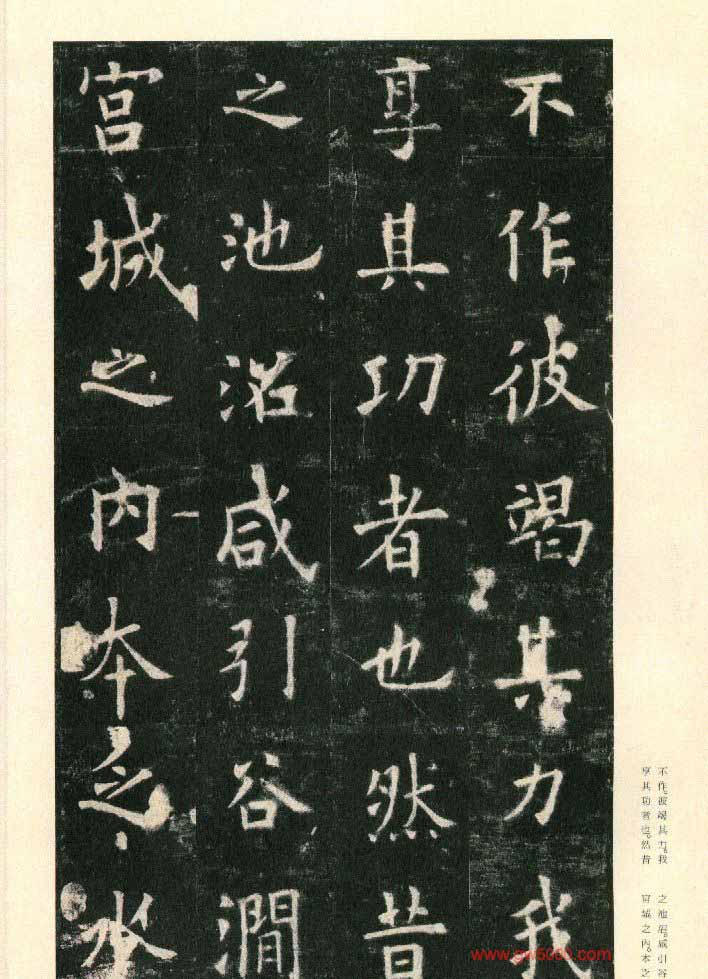 不作彼竭其力我
享其功者也然昔
之池沼咸引谷澗
宮城之內本乏水
不作。彼竭其力。我
享其功者也。然昔
之池沼。咸引谷
宮城之內。本乏
www.gw5000.com